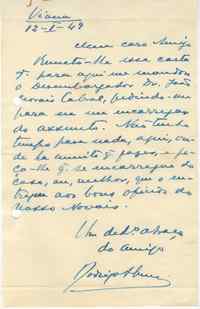 Viana
12-X-49
Meu caro Amigo
Remeto-lhe essa carta
q. para aqui me mandou o
Desembargador Dr. João
Morais Cabral, pedindo-me
para me encarregar
do assunto. Não tenho
tempo para nada, aqui, on-
de há muito q. fazer, e pe-
ço-lhe q. se encarregue da
cousa, ou, melhor, que o en-
tregue aos bons ofícios do
nosso Novais.
Um abraço
do amigo